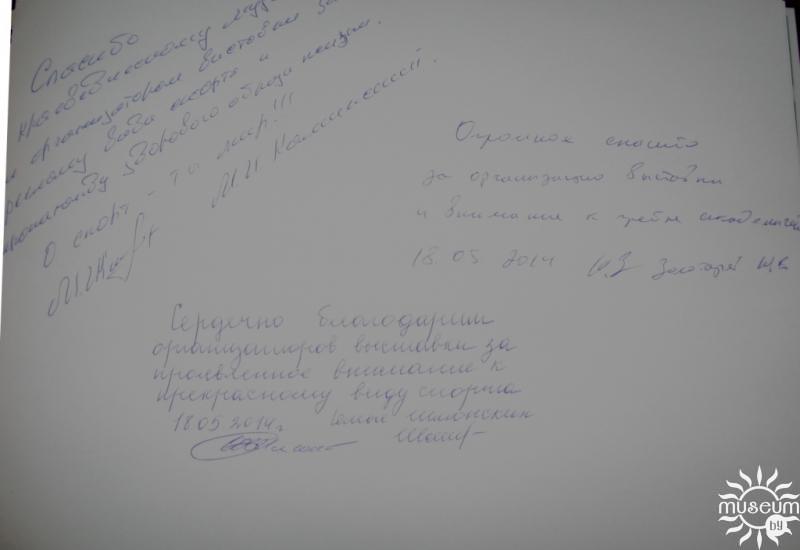 Спасибо
краеведческому музе
и организаторам выставки за
рекламу вида спорта и
пропаганду здорового образа жизни.
О спорт - ты мир!!!
М.И. Каминский.
Огромное спасибо
за организацию выставки
и внимание к гребле академической
18.05 2014
Сердечно благодарим
организаторов выставки за
проявленное внимание к
прекрасному виду спорта
18.05.2014г. Семья
museum
by